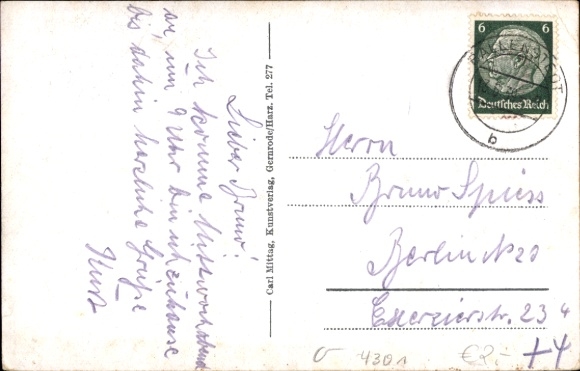 Lieber Bruno!
Ich komme Mittwochabend
um 9 Uhr bin ich zuhause
bis dahin herzliche Grüße
Kurt
Carl Mittag, Kunstverlag, Gernrode/Harz. Tel. 277
6 6
Deutsches Reich
BALLENSTEDT
b
Herrn
Bruno Spiess
Berlin N 20
Exerzierstr. 23 a
4301 €2,- +4